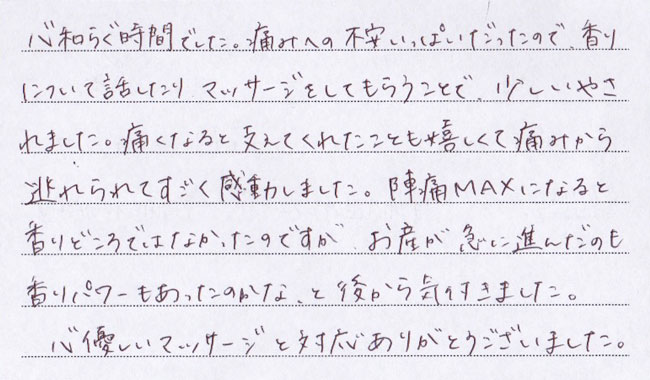 心和らぐ時間でした。痛みへの不安いっぱいだったので、香り
について話したりマッサージをしてもらうことで、少しいやさ
れました。痛くなると支えてくれたことも嬉しくて痛みから
逃れられてすごく感動しました。陣痛MAXになると
香りどころではなかったのですが、お産が急に進んだのも
香りパワーもあったのかな、と後から気付きました。
心優しいマッサージと対応ありがとうございました。